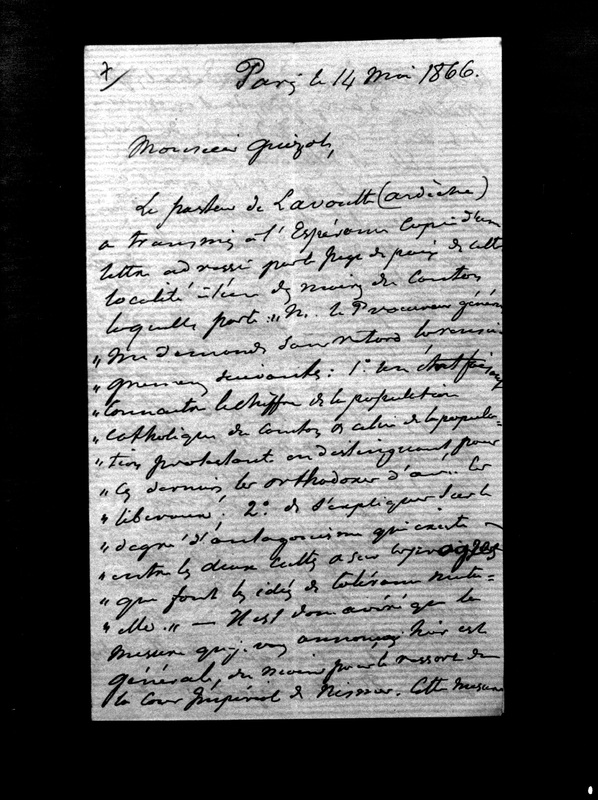 7/ Paris le 14 Mai 1866.
Monsieur Guizot,
Le pasteur de Lavoulte (ardèche)
a transmis à l'Espérance Copie d'une
lettre adressée par le Juge de paix de cette
localité à l'un des maires du Canton
laquelle porte: "M. le Procureur général
"me demande sans retard les rensei
"gnemens suivants: 1.° un état faisant
"Connaitre le chiffre de la population
"catholique du Canton & celui de la popula=
"tion protestante en distinguant pour
"ces derniers les orthodoxes d'avec les
"libéraux. 2.° de s'expliquer sur le
"degré d'antagonisme qui existe
"entre les deux cultes & sur les progrès
"que font les idées de tolérance mutu=
"elle." — Il est donc avéré que la
mesure que je vous annonçais hier est
générale, du moins pour le ressort de
la Cour Impériale de Nismes. Cette mesure